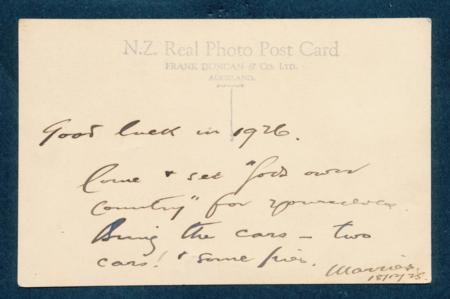 N.Z. Real Photo Post Card
FRANK DUNCAN & Co. LTD.
AUCKLAND.
Good luck in 1926.
Come & see "God's own
Country" for yourselves.
Bring the cars – two
cars! & some